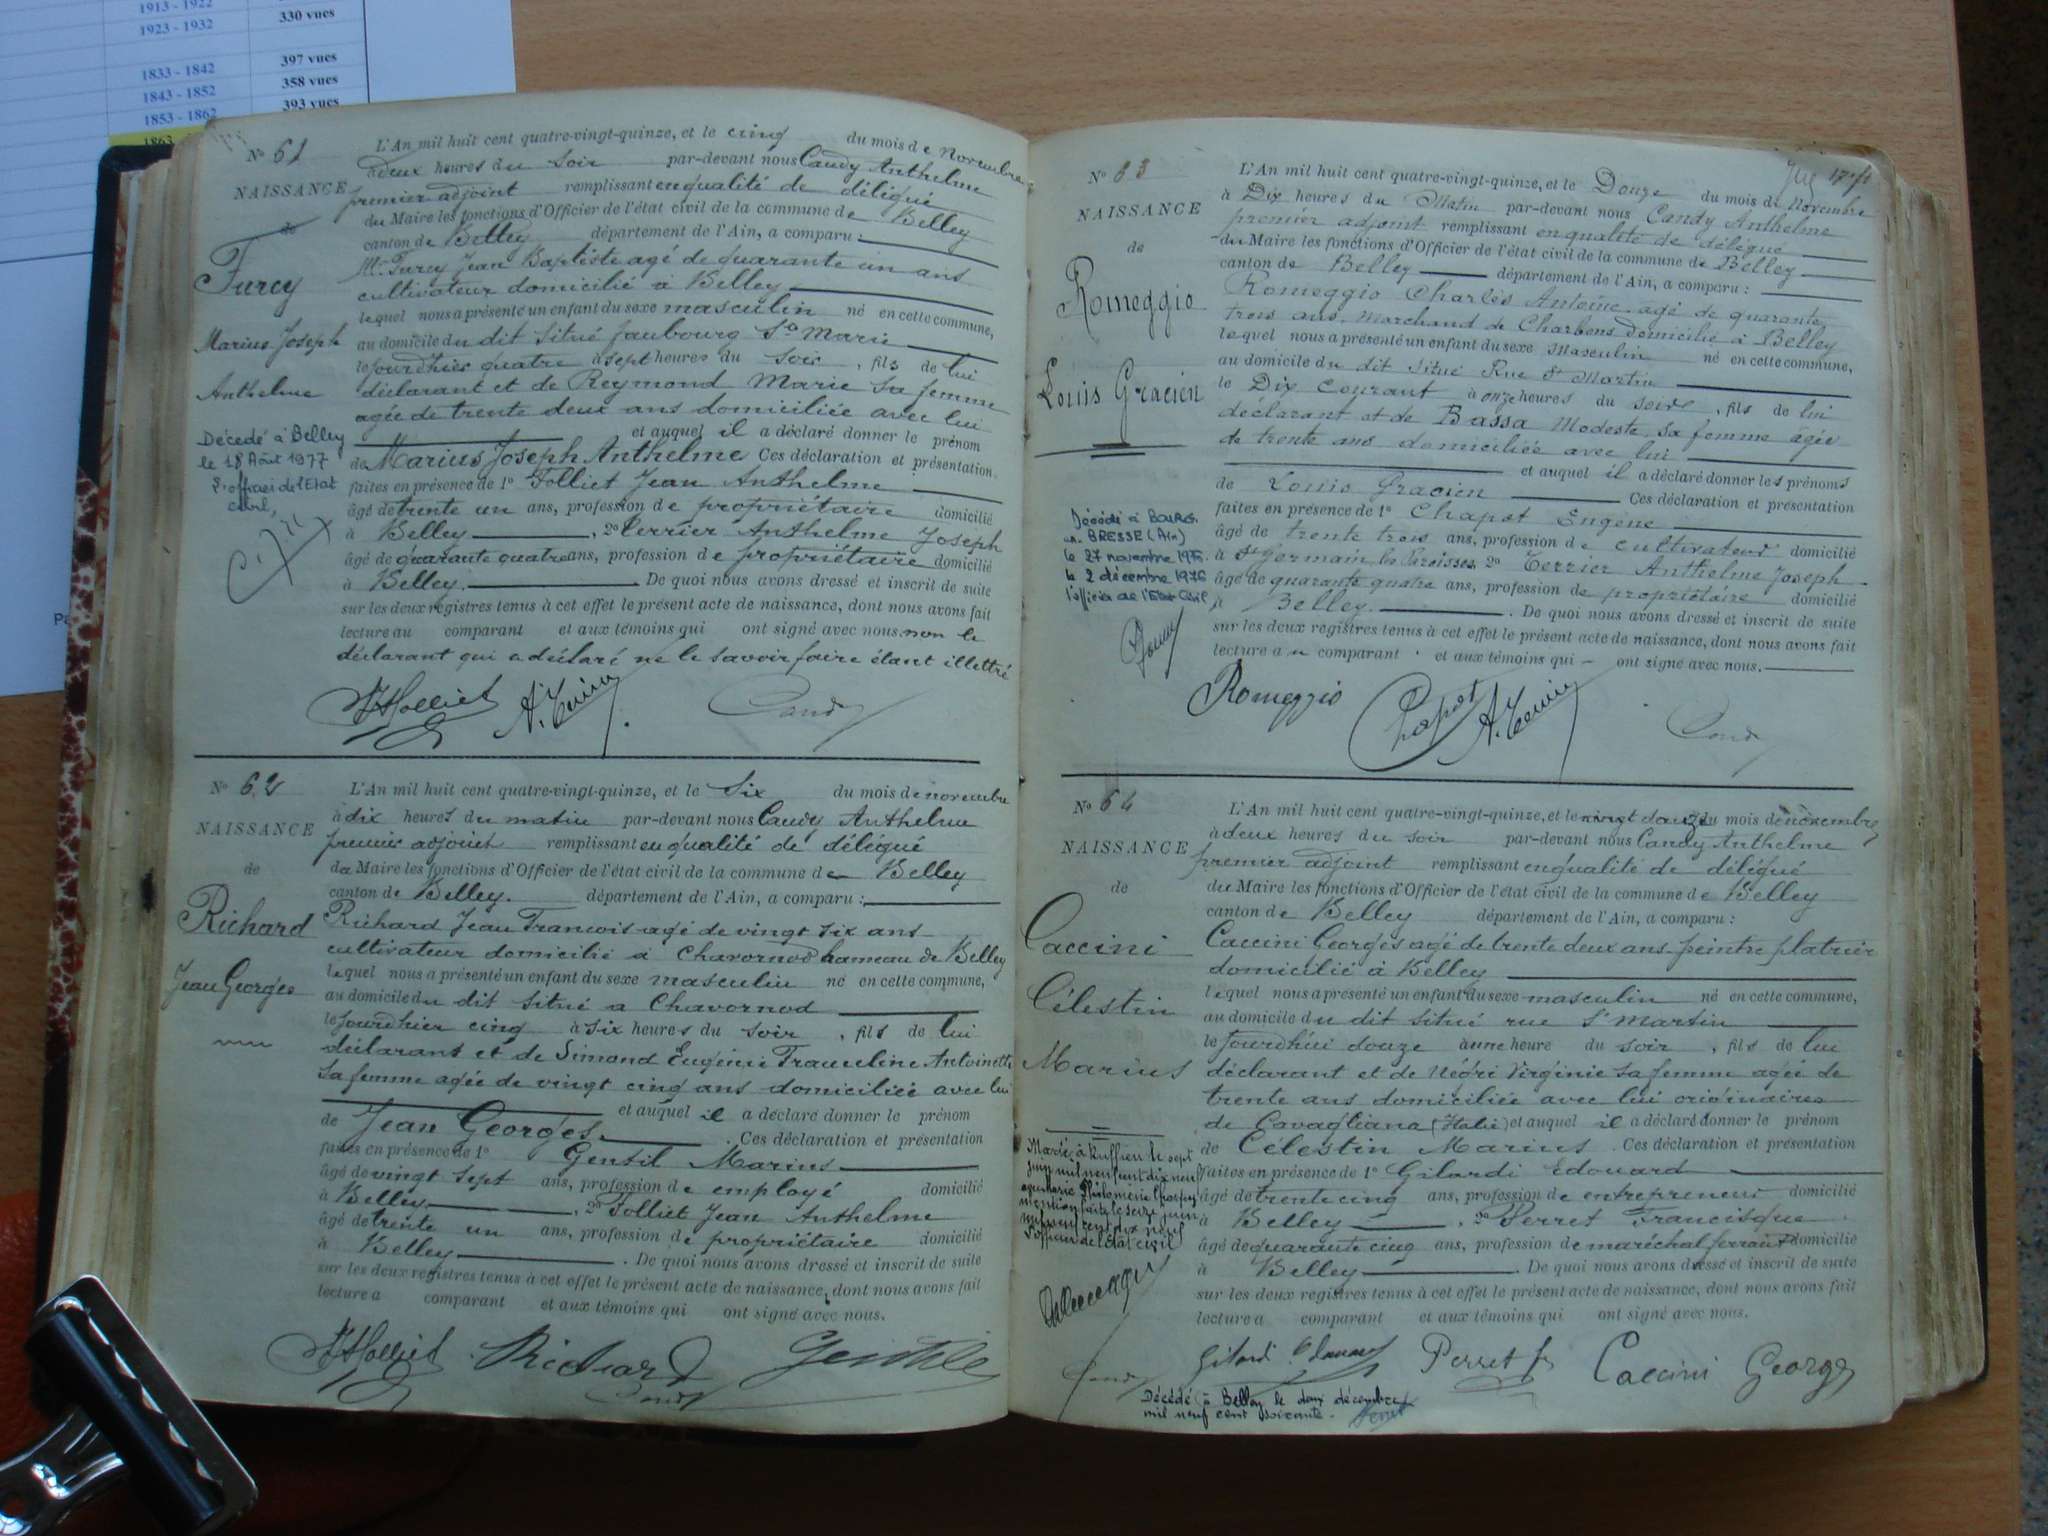 1913 - 1922
1923 - 1932 330 vues
1833 - 1842 397 vues
1843 - 1852 358 vues
1853 - 1862 393 vues
1863
Pa
N° 61
NAISSANCE
de
Furcy
Marius Joseph
Anthelme
Décédé à Belley
le 18 Août 1977
L'officier de l'Etat
civil,
L'An mil huit cent quatre-vingt-quinze, et le cinq du mois de Novembre
à deux heures du soir par-devant nous Candy Anthelme
premier adjoint remplissant en qualité de délégué
du Maire les fonctions d'Officier de l'état civil de la commune de Belley
canton de Belley département de l'Ain, a comparu :
Mr Furcy Jean Baptiste agé de quarante un ans
cultivateur domicilié à Belley
lequel nous a présenté un enfant du sexe masculin né en cette commune,
au domicile du dit situé faubourg Ste Marie
le jourd'hier quatre à sept heures du soir, fils de lui
déclarant et de Reymond Marie sa femme
agée de trente deux ans domiciliée avec lui
et auquel il a déclaré donner le prénom
de Marius Joseph Anthelme Ces déclaration et présentation
faites en présence de 1° Folliet Jean Anthelme
âgé de trente un ans, profession de propriétaire domicilié
à Belley, 2° Terrier Anthelme Joseph
âgé de quarante quatre ans, profession de propriétaire domicilié
à Belley. De quoi nous avons dressé et inscrit de suite
sur les deux registres tenus à cet effet le présent acte de naissance, dont nous avons fait
lecture au comparant et aux témoins qui ont signé avec nous. non le
déclarant qui a déclaré ne le savoir faire étant illettré
JA Folliet A. Terrier Candy
N° 62
NAISSANCE
de
Richard
Jean Georges
L'An mil huit cent quatre-vingt-quinze, et le six du mois de novembre
à dix heures du matin par-devant nous Candy Anthelme
premier adjoint remplissant en qualité de délégué
du Maire les fonctions d'Officier de l'état civil de la commune de Belley
canton de Belley. département de l'Ain, a comparu :
Richard Jean François agé de vingt six ans
cultivateur domicilié à Chavornod hameau de Belley
lequel nous a présenté un enfant du sexe masculin né en cette commune,
au domicile du dit situé a Chavornod
le jourd'hier cinq à six heures du soir, fils de lui
déclarant et de Simond Eugénie Franceline Antoinette
sa femme agée de vingt cinq ans domiciliée avec lui
et auquel il a déclaré donner le prénom
de Jean Georges. Ces déclaration et présentation
faites en présence de 1° Gentil Marius
âgé de vingt sept ans, profession de employé domicilié
à Belley, 2° Folliet Jean Anthelme
âgé de trente un ans, profession de propriétaire domicilié
à Belley. De quoi nous avons dressé et inscrit de suite
sur les deux registres tenus à cet effet le présent acte de naissance, dont nous avons fait
lecture a comparant et aux témoins qui ont signé avec nous.
JA Folliet Richard Gentil
Candy
N° 63
NAISSANCE
de
Romeggio
Louis Gracien
Décédé à BOURG.
en BRESSE (Ain)
le 27 novembre 1976
le 2 décembre 1976
l'officier de l'Etat Civil
L'An mil huit cent quatre-vingt-quinze, et le Douze du mois de Novembre
à Dix heures du Matin par-devant nous Candy Anthelme
premier adjoint remplissant en qualité de délégué
du Maire les fonctions d'Officier de l'état civil de la commune de Belley
canton de Belley département de l'Ain, a comparu :
Romeggio Charles Antoine agé de quarante
trois ans, Marchand de Charbons domicilié à Belley
lequel nous a présenté un enfant du sexe Masculin né en cette commune,
au domicile du dit situé Rue St Martin
le Dix courant à onze heures du soir, fils de lui
déclarant et de Bassa Modeste, sa femme âgée
de trente ans domiciliée avec lui
et auquel il a déclaré donner les prénoms
de Louis Gracien Ces déclaration et présentation
faites en présence de 1° Chapot Eugène
âgé de trente trois ans, profession de cultivateur domicilié
à St Germain les Paroisses, 2° Terrier Anthelme Joseph
âgé de quarante quatre ans, profession de propriétaire domicilié
à Belley. De quoi nous avons dressé et inscrit de suite
sur les deux registres tenus à cet effet le présent acte de naissance, dont nous avons fait
lecture au comparant et aux témoins qui ont signé avec nous.
Romeggio Chapot A. Terrier Candy
N° 64
NAISSANCE
de
Caccini
Célestin
Marius
Marié à Ruffieu le sept
juin mil neuf cent dix neuf
mention faite le seize juin
mil neuf cent dix neuf
l'officier de l'état civil
L'An mil huit cent quatre-vingt-quinze, et le vingt douze du mois de novembre
à deux heures du soir par-devant nous Candy Anthelme
premier adjoint remplissant en qualité de délégué
du Maire les fonctions d'Officier de l'état civil de la commune de Belley
canton de Belley département de l'Ain, a comparu :
Caccini Georges agé de trente deux ans peintre platrier
domicilié à Belley
lequel nous a présenté un enfant du sexe masculin né en cette commune,
au domicile du dit situé rue St Martin
le jourd'hui douze à une heure du soir, fils de lui
déclarant et de Négri Virginie sa femme agée de
trente ans domiciliée avec lui originaires
de Cavagliana (Italie) et auquel il a déclaré donner le prénom
de Célestin Marius. Ces déclaration et présentation
faites en présence de 1° Gilardi Edouard
âgé de trente cinq ans, profession de entrepreneur domicilié
à Belley, 2° Perret Francisque
âgé de quarante cinq ans, profession de maréchal ferrant domicilié
à Belley. De quoi nous avons dressé et inscrit de suite
sur les deux registres tenus à cet effet le présent acte de naissance, dont nous avons fait
lecture a comparant et aux témoins qui ont signé avec nous.
Candy Gilardi Edouard Perret f Caccini George
Décédé à Belley le deux décembre
mil neuf cent soixante.